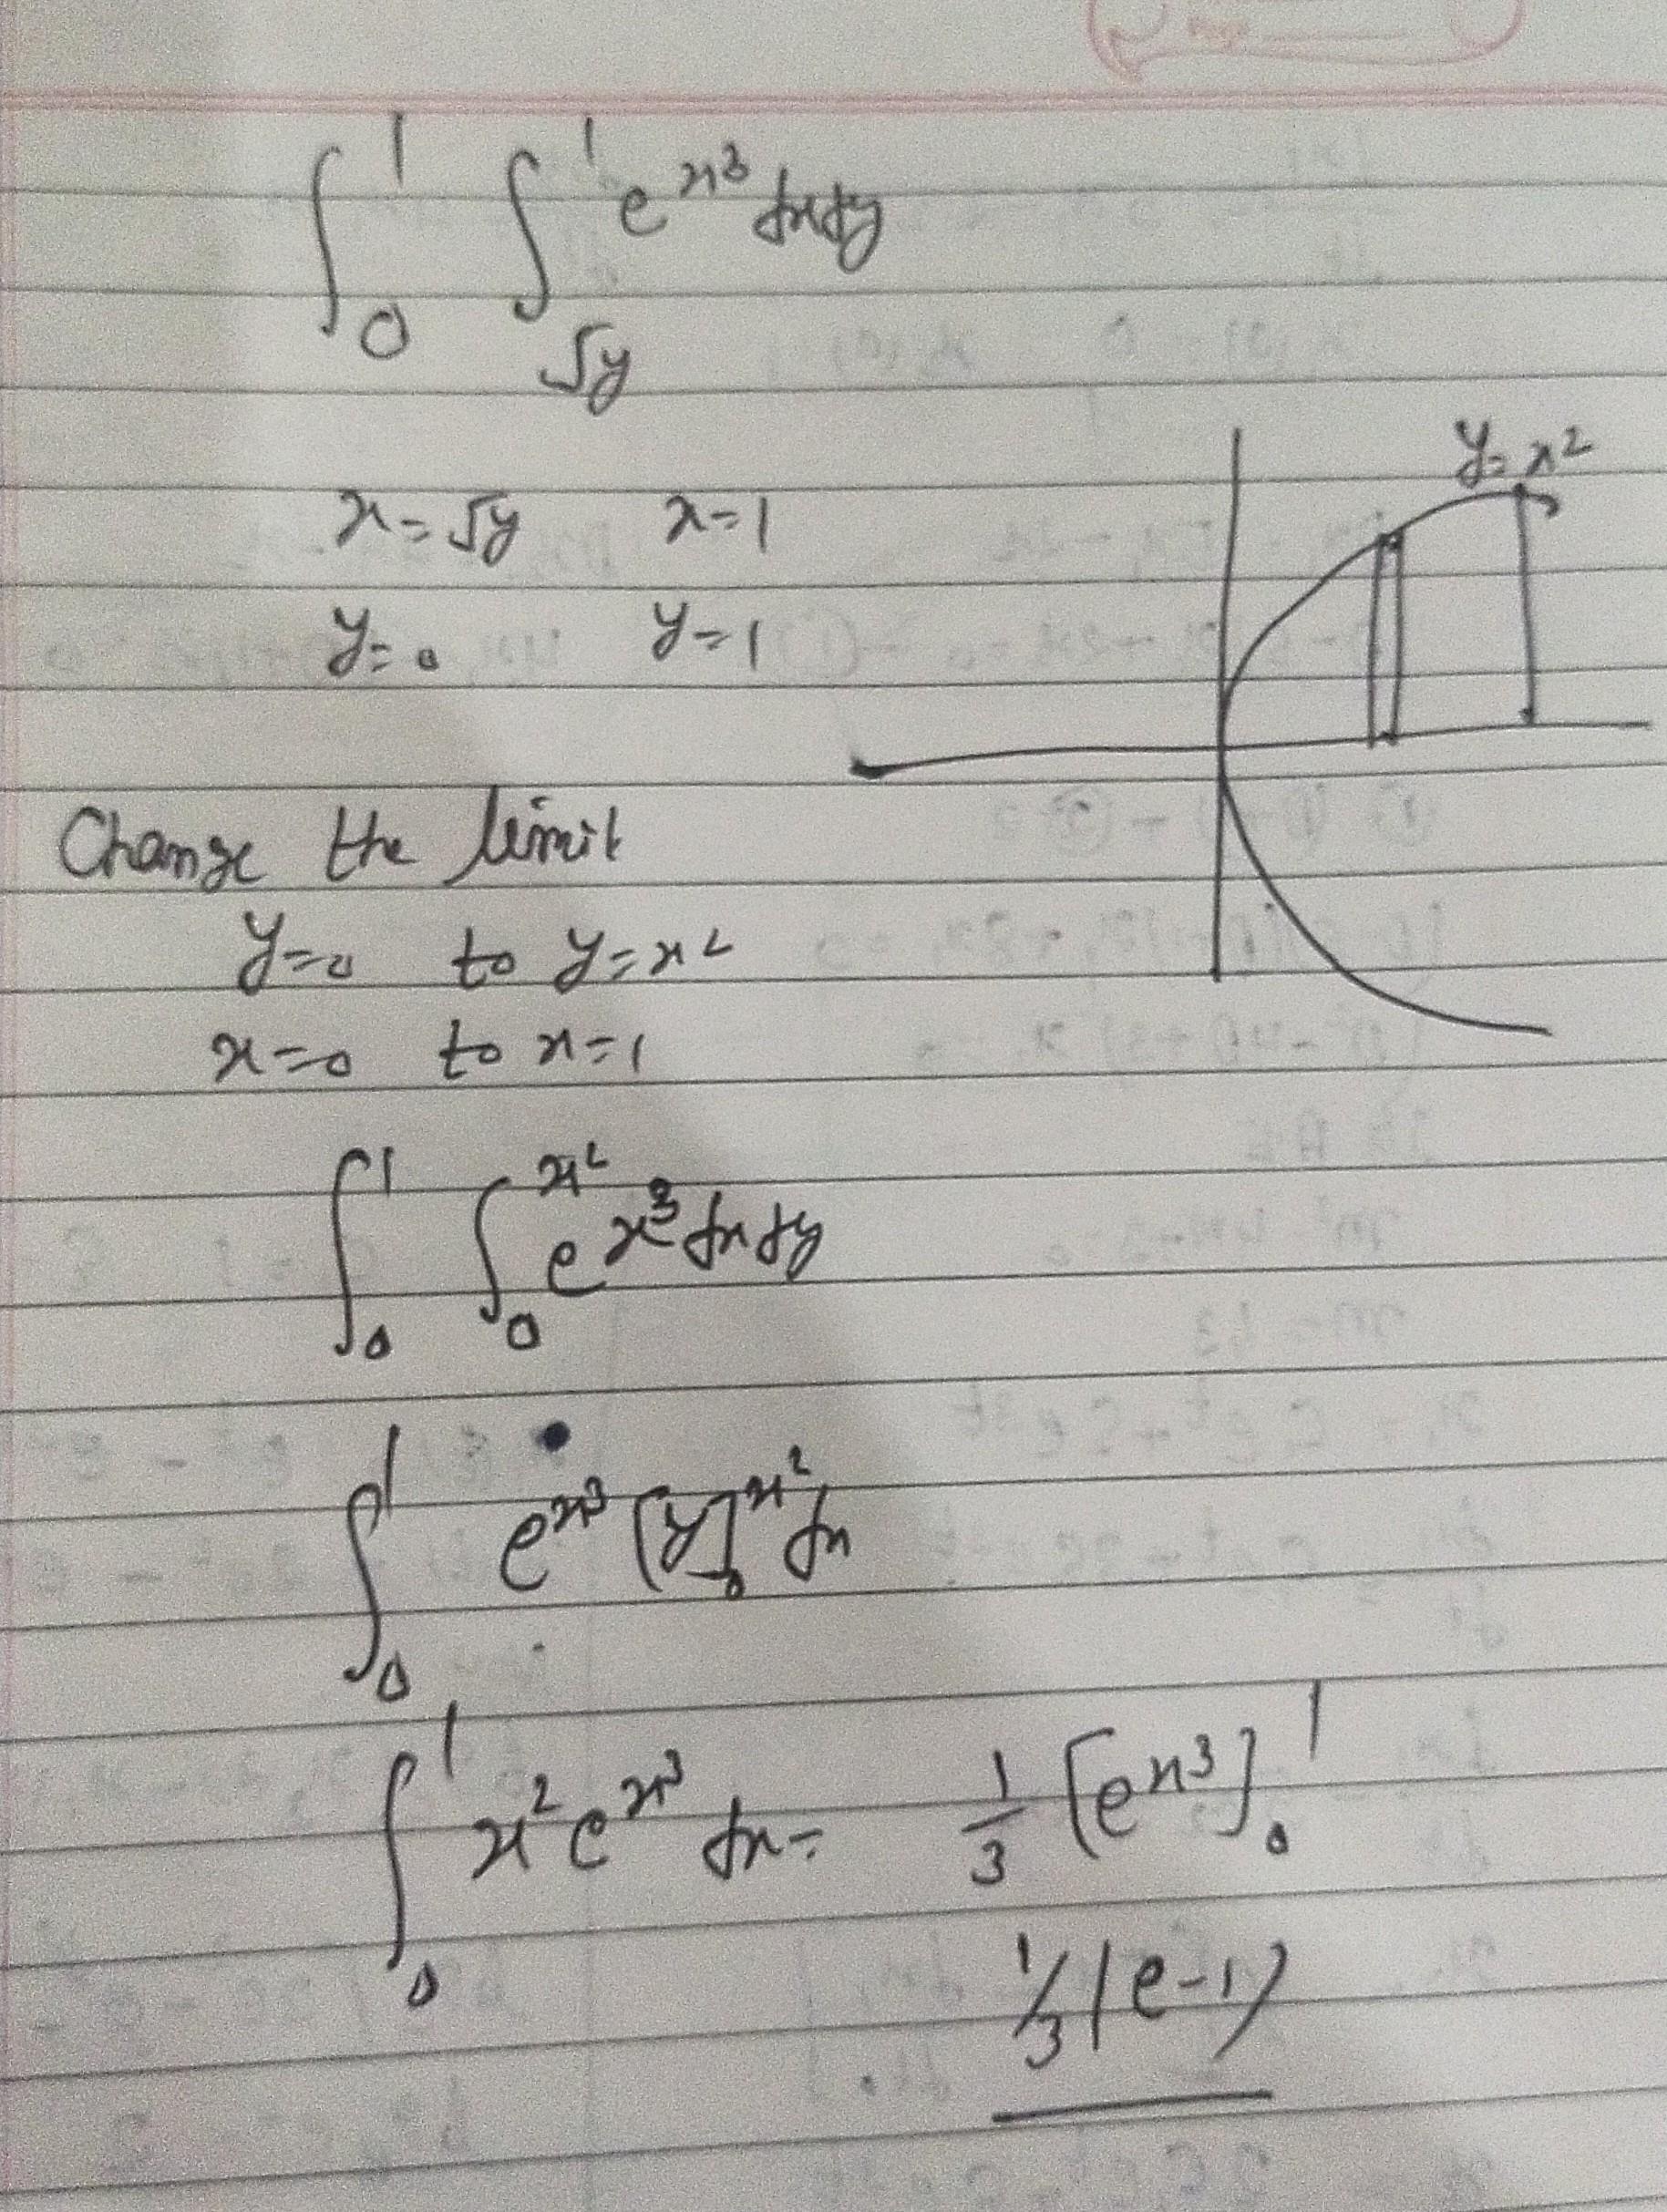 ∫₀¹ ∫_{√y}¹ e^{x³} dx dy
y = x²
x = √y    x = 1
y = 0    y = 1
Change the limit
y = 0 to y = x²
x = 0 to x = 1
∫₀¹ ∫₀^{x²} e^{x³} dx dy
∫₀¹ e^{x³} [y]₀^{x²} dx
∫₀¹ x² e^{x³} dx = 1/3 [e^{x³}]₀¹
1/3 (e-1)